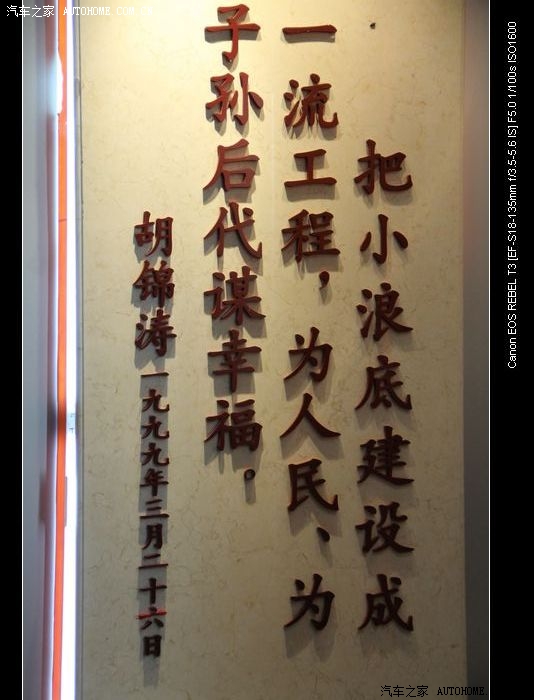 把小浪底建设成
一流工程，为人民、为
子孙后代谋幸福。
胡锦涛一九九九年三月二十六日
汽车之家 AUTOHOME.COM.CN
Canon EOS REBEL T3 [EF-S18-135mm f/3.5-5.6 IS] F5.0 1/100s ISO1600
汽车之家 AUTOHOME